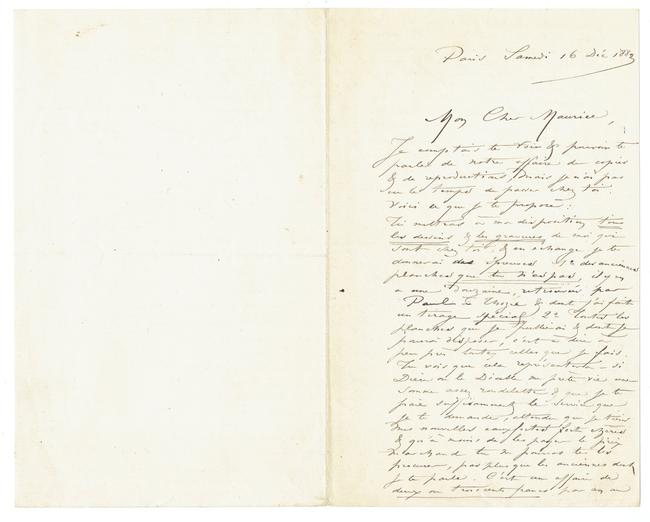 Paris Samedi 16 Déc 1882
Mon Cher Maurice,
Je comptais te voir & pouvoir te
parler de notre affaire de copies
& de reproductions, mais je n'ai pas
eu le temps de passer chez toi
Voici ce que je te propose :
Tu mettras à ma disposition tous
les dessins & les gravures de moi qui
sont chez toi, & en échange je te
donnerai des épreuves 1º des anciennes
planches que tu n'as pas, il y en
a une douzaine, retrouvées par
Paul à & dont j'ai fait
un tirage spécial, 2º toutes les
planches que je publierai & dont je
pourrai disposer, c'est à dire à
peu près toutes celles que je fais.
Tu vois que cela représentera si
Dieu ou le Diable me prête vie une
somme assez rondelette & que je te
paie suffisamment le service que
je te demande, attendu que je tiens
mes nouvelles eaufortes fort chères
& qu'à moins de les payer le prix
marchand tu ne pourras te les
procurer, pas plus que les anciennes dont
je te parle. C'est un affaire de
deux ou trois cents francs par an au